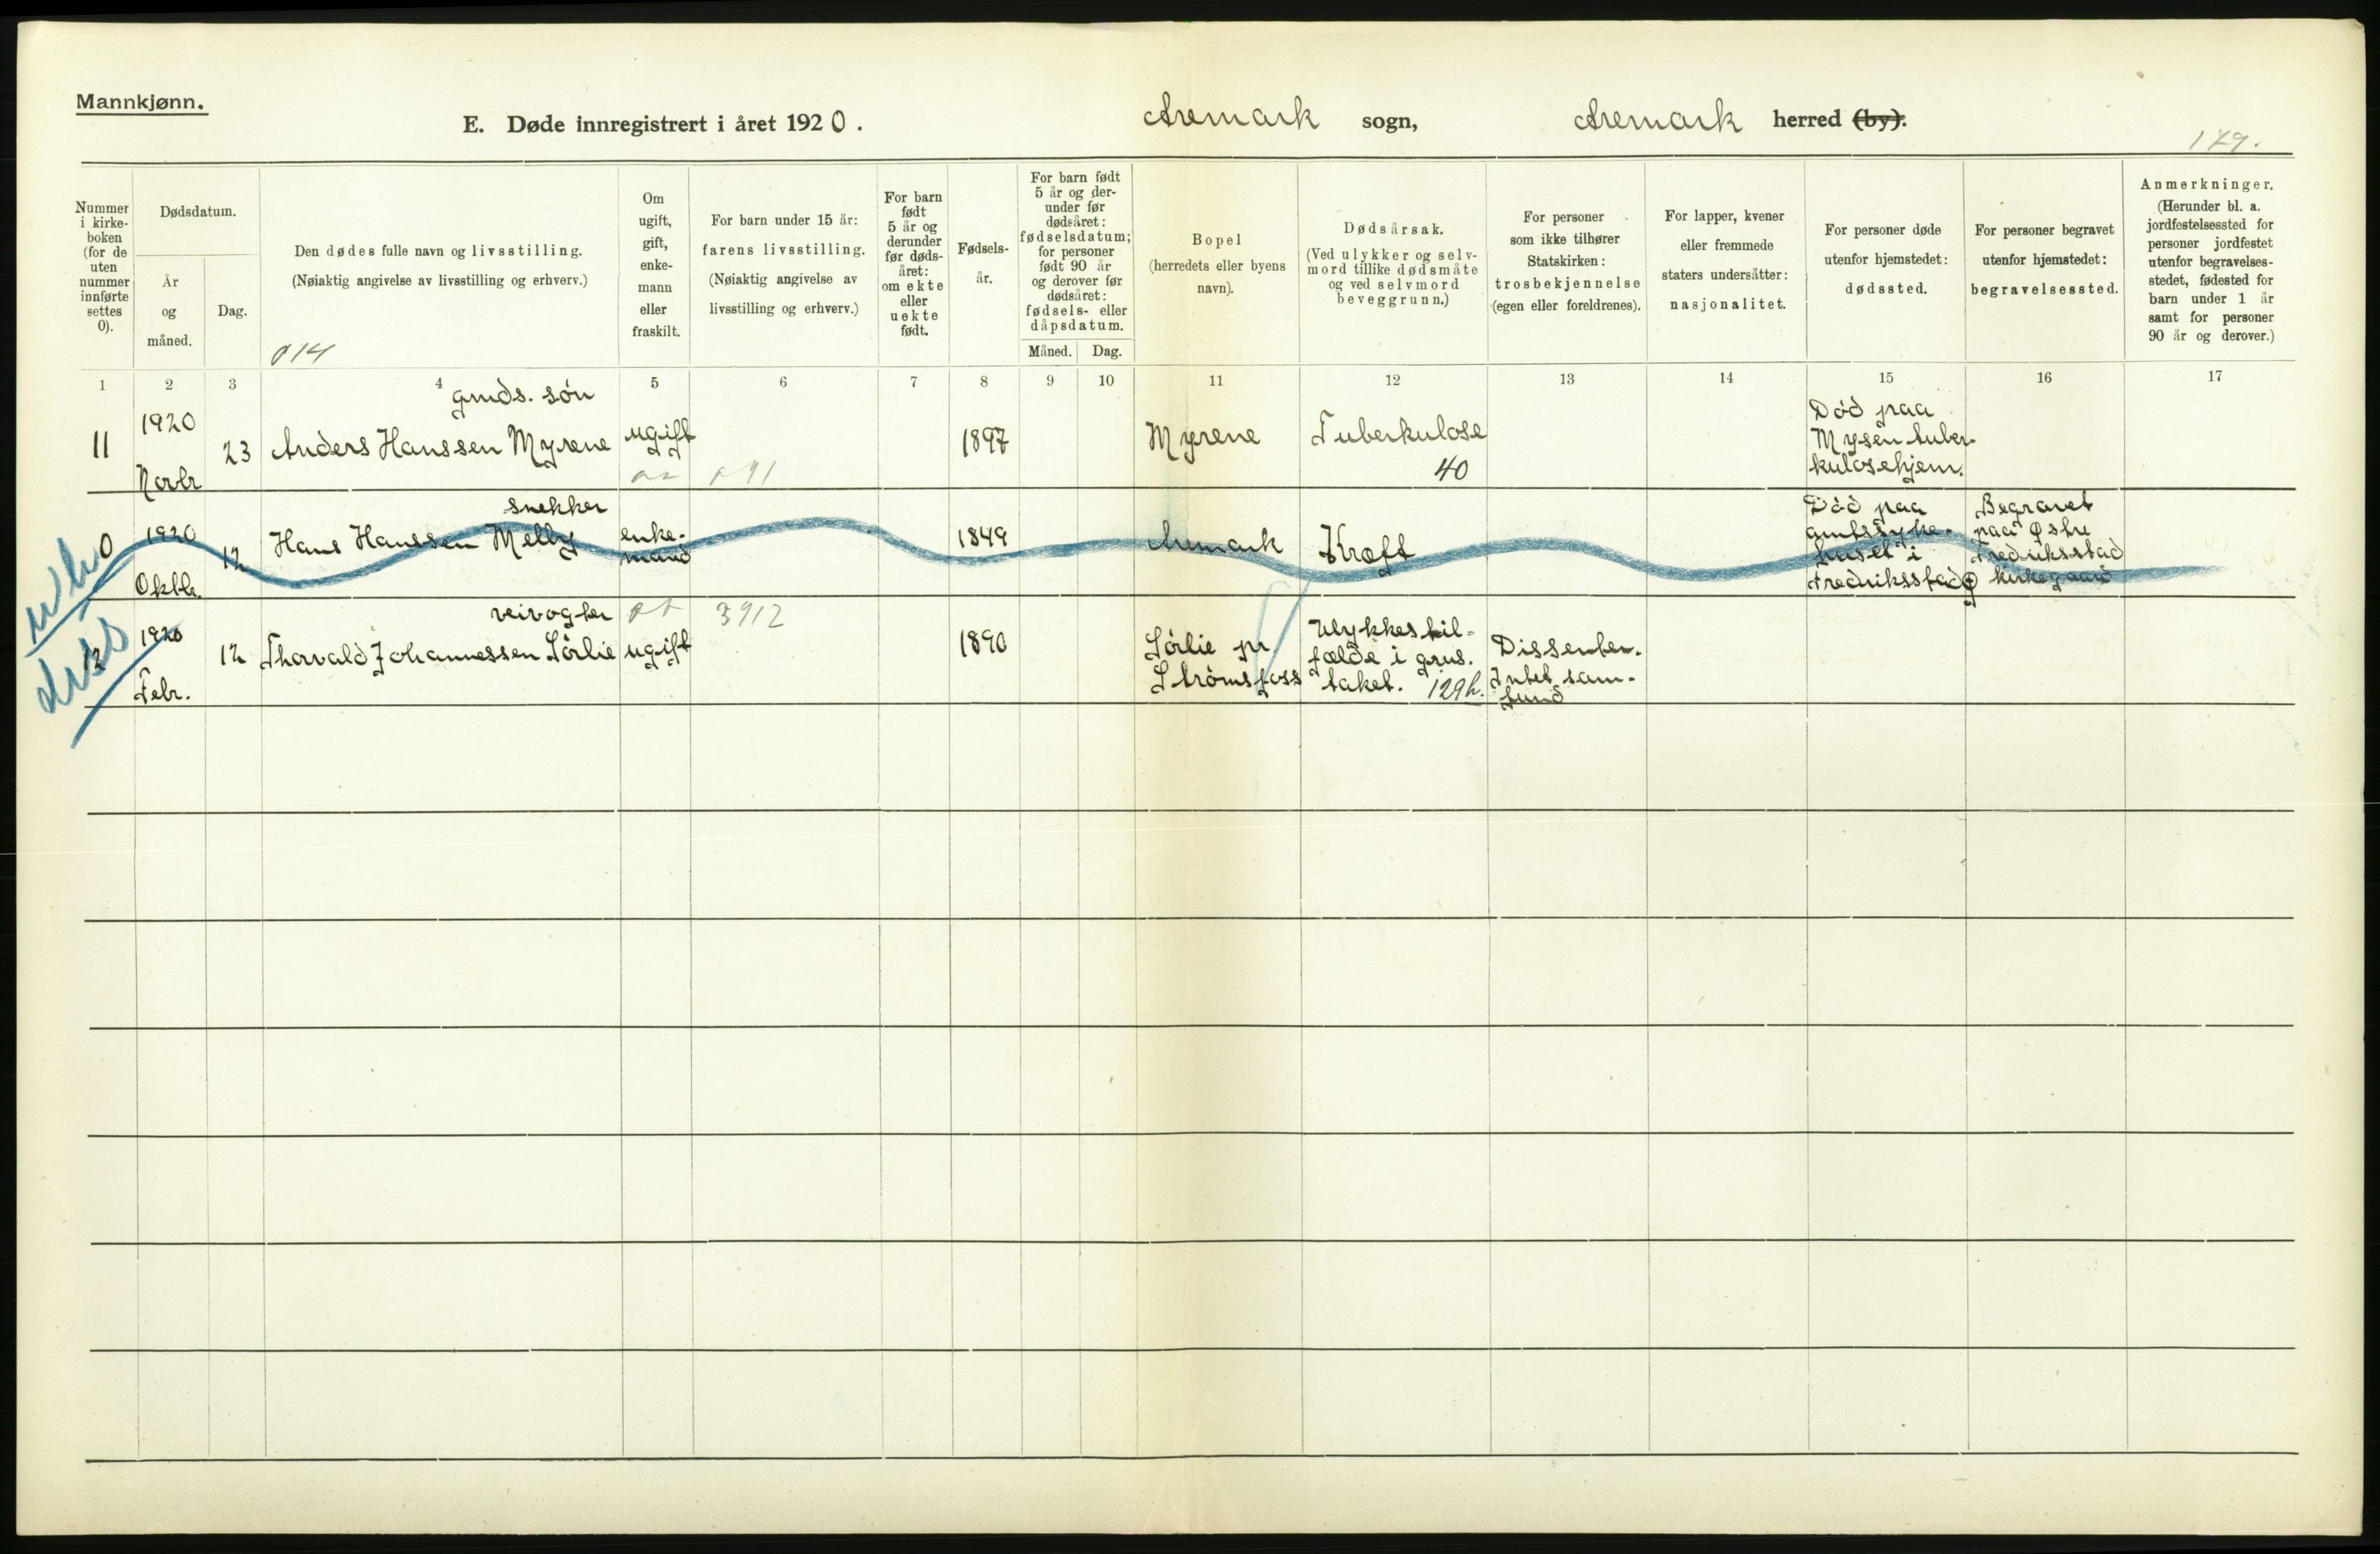 Mannkjønn.
E. Døde innregistrert i året 1920.
Aremark sogn,
Aremark herred (by).
179.
Nummer
i kirke-
boken
(for de
uten
nummer
innførte
settes
0).
Dødsdatum.
År
og
måned.
Dag.
Den dødes fulle navn og livsstilling.
(Nøiaktig angivelse av livsstilling og erhverv.)
014
Om
ugift,
gift,
enke-
mann
eller
fraskilt.
For barn under 15 år:
farens livsstilling.
(Nøiaktig angivelse av
livsstilling og erhverv.)
For barn
født
5 år og
derunder
før døds-
året:
om ekte
eller
uekte
født.
Fødsels-
år.
For barn født
5 år og der-
under før
dødsåret:
fødselsdatum;
for personer
født 90 år
og derover før
dødsåret:
fødsels- eller
dåpsdatum.
Måned. Dag.
Bopel
(herredets eller byens
navn).
Dødsårsak.
(Ved ulykker og selv-
mord tillike dødsmåte
og ved selvmord
beveggrunn.)
For personer
som ikke tilhører
Statskirken:
trosbekjennelse
(egen eller foreldrenes).
For lapper, kvener
eller fremmede
staters undersåtter:
nasjonalitet.
For personer døde
utenfor hjemstedet:
dødssted.
For personer begravet
utenfor hjemstedet:
begravelsessted.
Anmerkninger.
(Herunder bl. a.
jordfestelsessted for
personer jordfestet
utenfor begravelses-
stedet, fødested for
barn under 1 år
samt for personer
90 år og derover.)
1 2 3 4 5 6 7 8 9 10 11 12 13 14 15 16 17
11
1920
Novbr
23
gmds. søn
Anders Hanssen Myrene
ugift
1897
Myrene
Tuberkulose
40
Død paa
Mysen tuber-
kulosehjem.
0
1920
Oktbr.
12
snekker
Hans Hanssen Melby
enke-
mand
1849
Aremark
Kræft
Død paa
amtssyke-
huset i
Fredriksstad
Begravet
paa Østre
Fredriksstad
kirkegaard
12
1920
Febr.
12
veivogter
Thorvald Johannessen Sørlie
ugift
3912
1890
Sørlie pr
Strømsfoss
Ulykkestil-
fælde i grus-
taket. 129h.
Dissenter.
Intet sam-
fund
diss